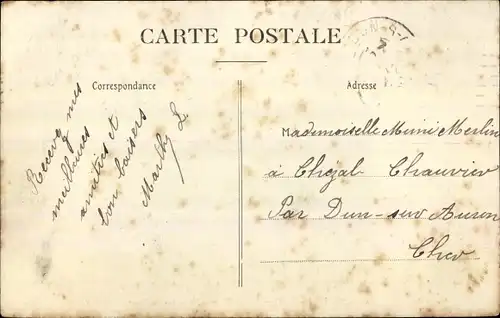 CARTE POSTALE
Correspondance
Adresse
Recevez mes
meilleures
amitiés et
bon baisers
Marthe L
Mademoiselle Mimi Merlin
à Chezal Chauvier
Par Dun-sur Auron
Cher